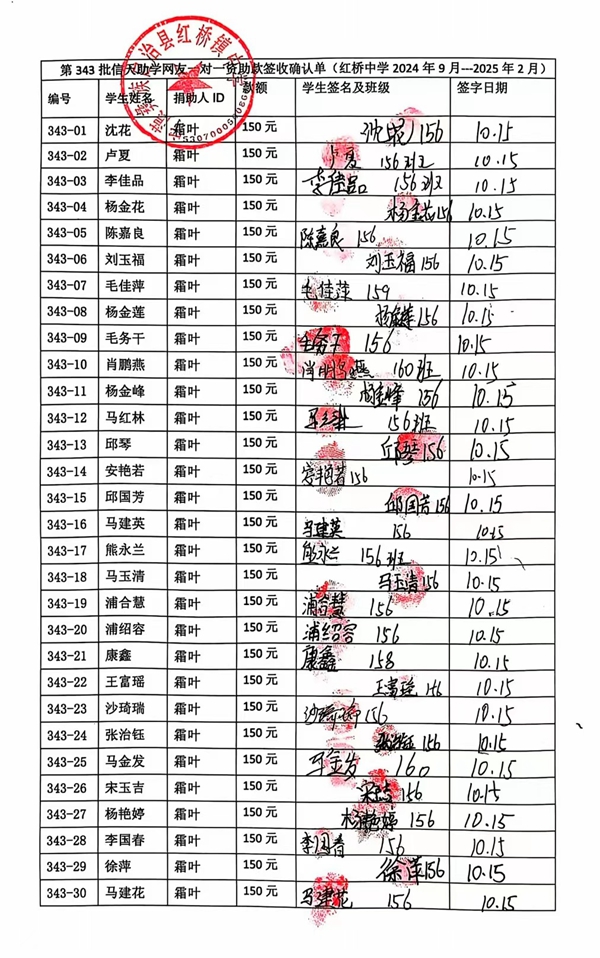 第 343 批信天助学网友一对一资助款签收确认单（红桥中学 2024 年 9 月---2025 年 2 月）
编号 学生姓名 捐助人 ID 款额 学生签名及班级 签字日期
343-01 沈花 霜叶 150 元 沈花 156 10.15
343-02 卢夏 霜叶 150 元 卢夏 156班 10.15
343-03 李佳品 霜叶 150 元 李佳品 156班 10.15
343-04 杨金花 霜叶 150 元 杨金花 156 10.15
343-05 陈嘉良 霜叶 150 元 陈嘉良 156 10.15
343-06 刘玉福 霜叶 150 元 刘玉福 156 10.15
343-07 毛佳萍 霜叶 150 元 毛佳萍 159 10.15
343-08 杨金莲 霜叶 150 元 杨金莲 156 10.15
343-09 毛务干 霜叶 150 元 毛务干 156 10.15
343-10 肖鹏燕 霜叶 150 元 肖鹏燕 160班 10.15
343-11 杨金峰 霜叶 150 元 杨金峰 156 10.15
343-12 马红林 霜叶 150 元 马红林 156班 10.15
343-13 邱琴 霜叶 150 元 邱琴 156 10.15
343-14 安艳若 霜叶 150 元 安艳若 156 10.15
343-15 邱国芳 霜叶 150 元 邱国芳 156 10.15
343-16 马建英 霜叶 150 元 马建英 156 10.15
343-17 熊永兰 霜叶 150 元 熊永兰 156班 10.15
343-18 马玉清 霜叶 150 元 马玉清 156 10.15
343-19 浦合慧 霜叶 150 元 浦合慧 156 10.15
343-20 浦绍容 霜叶 150 元 浦绍容 156 10.15
343-21 康鑫 霜叶 150 元 康鑫 158 10.15
343-22 王富瑶 霜叶 150 元 王富瑶 156 10.15
343-23 沙琦瑞 霜叶 150 元 沙琦瑞 156 10.15
343-24 张治钰 霜叶 150 元 张治钰 156 10.15
343-25 马金发 霜叶 150 元 马金发 160 10.15
343-26 宋玉吉 霜叶 150 元 宋玉吉 156 10.15
343-27 杨艳婷 霜叶 150 元 杨艳婷 156 10.15
343-28 李国春 霜叶 150 元 李国春 156 10.15
343-29 徐萍 霜叶 150 元 徐萍 156 10.15
343-30 马建花 霜叶 150 元 马建花 156 10.15